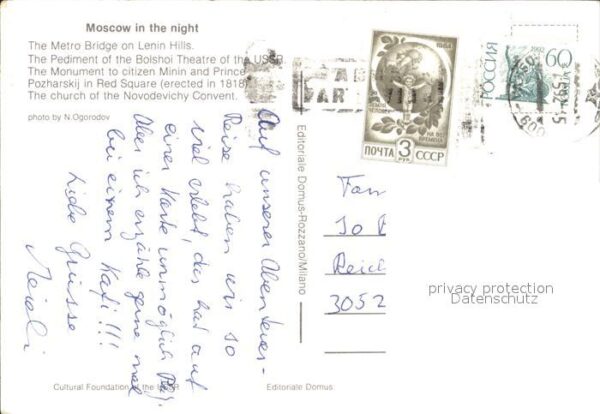 Moscow in the night
The Metro Bridge on Lenin Hills.
The Pediment of the Bolshoi Theatre of the USSR.
The Monument to citizen Minin and Prince
Pozharskij in Red Square (erected in 1818).
The church of the Novodevichy Convent.
photo by N.Ogorodov
Auf unserer Abenteuer-
Reise haben wir so
viel erlebt, das hat auf
einer Karte unmöglich Platz.
Aber ich erzähle gerne mal
bei einem Kafi!!!
Liebe Grüsse
Editoriale Domus-Rozzano/Milano
1984
ПОЧТА 3 РУБ СССР
РОССИЯ
1992
60
Fam
Jo
Reich
3052
privacy protection
Datenschutz
Cultural Foundation of the USSR
Editoriale Domus